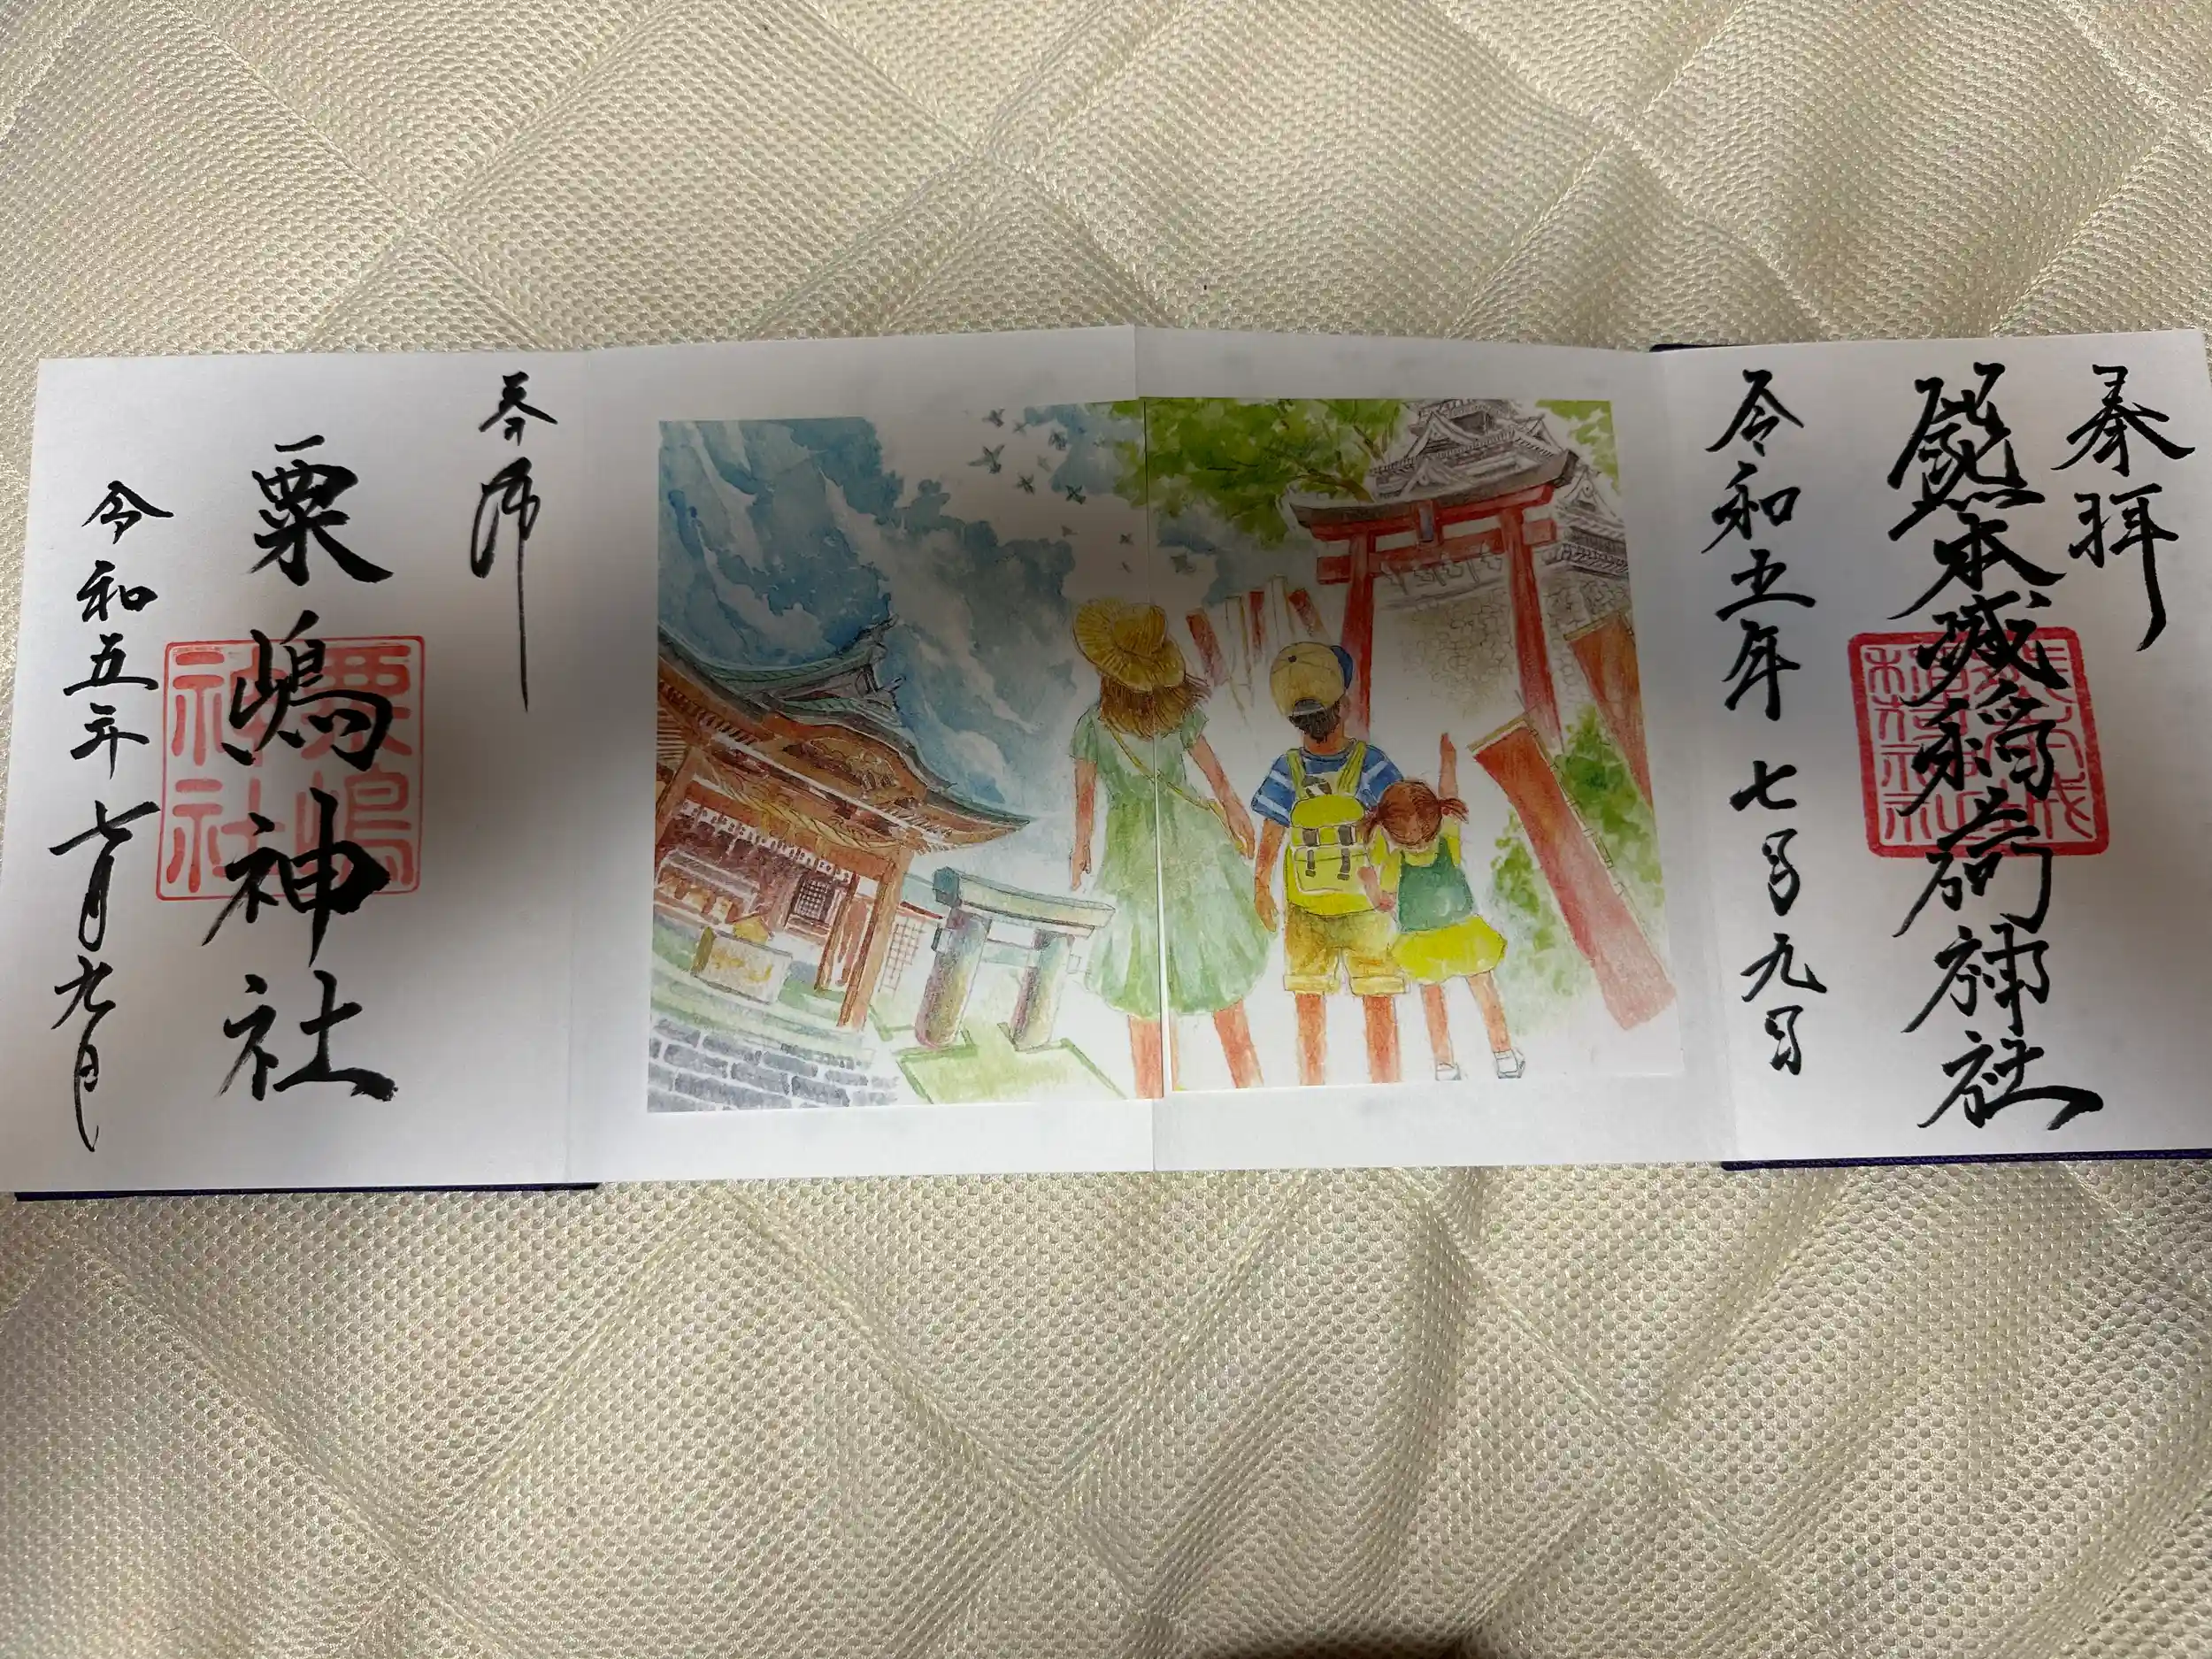 奉拝
熊本城稲荷神社
令和五年七月九日
奉拝
粟嶋神社
粟嶋神社
令和五年七月九日